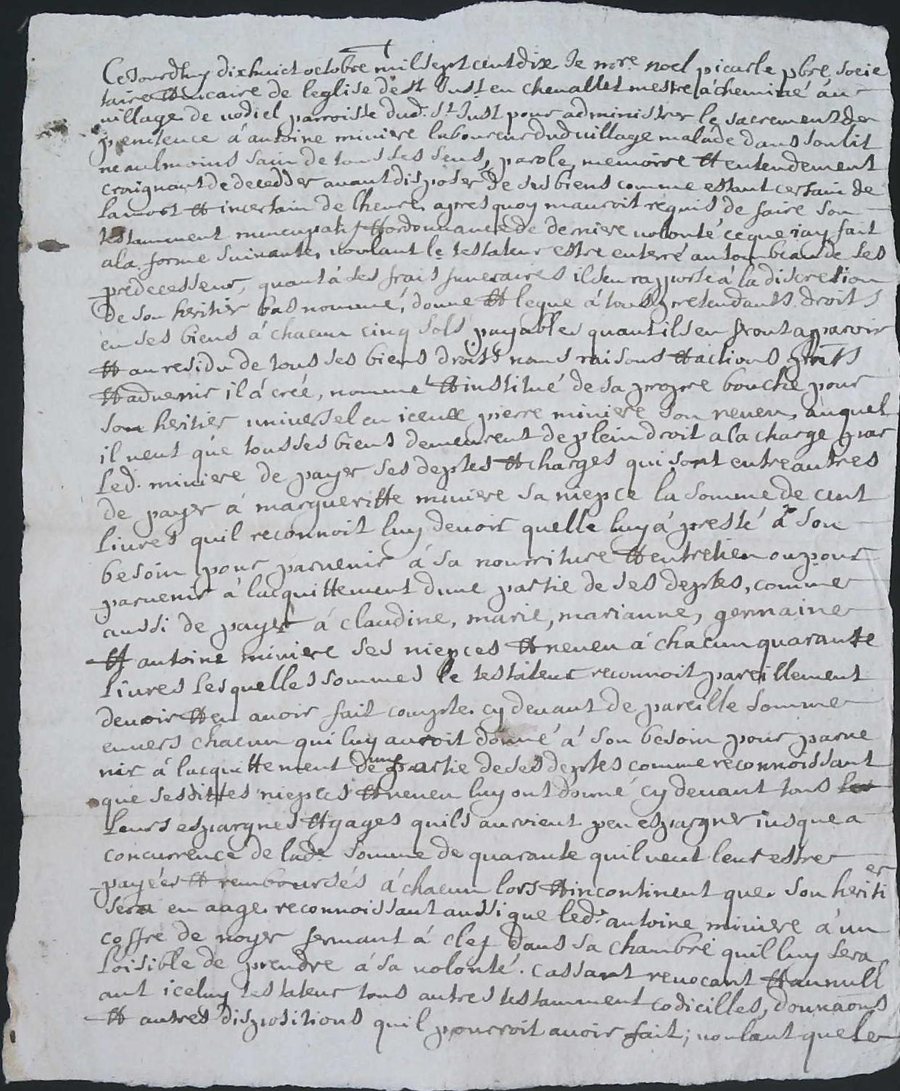 Cejourdhuy dixhuict octobre mil sept cent dix Je m.re noel picarle pbre socie
taire et vicaire de leglise de st Just en chevallet mestre acheminé au
village de vodiel parroisse dud. st Just pour administrer le sacrement de
penitence á antoine miniere laboureur dud village malade dans son lit
neaulmoins sain de tous ses sens, parole, memoire et entendement
craignant de decedder avant disposer de ses biens comme estant certain de
la mort et incertain de lheure apres quoy mauroit requis de faire son
testamment nuncupatif et ordonnance de derniere volonté ce que jay fait
a la forme suivante, voulant le testateur estre enterré au tombeau de ses
predecesseur, quant á ses frais funeraires il sen rapporte á la discretion
de son heritier bas nommé, donne et legue á tous pretendants droits
en ses biens á chacun cinq sols payables quant ils en feront apparoir
et au residu de tous ses biens droits noms raisons et actions pnts
et advenir il á créé, nommé et institué de sa propre bouche pour
son heritier universel en iceux pierre miniere son neveu, auquel
il veut que tous ses biens demeurent de plein droit a la charge par
led. miniere de payer ses deptes et charges qui sont entre autres
de payer á margueritte miniere sa niepce la somme de cent
livres quil reconnoit luy devoir quelle luy á presté á son
besoin pour parvenir á sa nourriture et entretien ou pour
parvenir á lacquittement dune partie de ses deptes, comme
aussi de payer á claudine, marie, marianne, germaine
et antoine miniere ses niepces et neveu á chacun quarante
livres lesquelles sommes le testateur reconnoit pareillement
devoir et en avoir fait compte cy devant de pareille somme
envers chacun qui luy auroit donné á son besoin pour parve
nir á lacquittement de une partie de ses deptes comme reconnoissant
que sesdittes niepces et neveu luy ont donné cy devant tous les
leurs espargnes et gages quils auroient peu espargner jusque a
concurrence de lade somme de quarante quil veut leur estre
payéer et remboursés á chacun lors et incontinent que son heritier
sera en aage reconnoissant aussi que led. antoine miniere á un
coffre de noyer fermant á clef dans sa chambre quil luy sera
loisible de prendre á sa volonté. cassant revocant et annull
ant iceluy testateur tous autres testamment codicilles, donnaons
et autres dispositions quil pourroit avoir fait; voulant que le